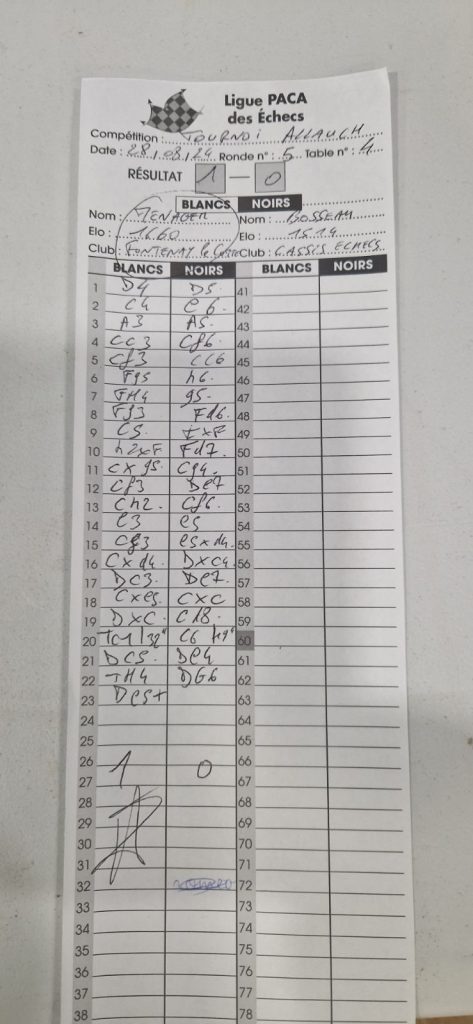 Ligue PACA
des Échecs
Compétition : TOURNOI ALLAUCH
Date : 28/03/24 Ronde n° : 5 Table n° : 4
RÉSULTAT 1 — 0
BLANCS NOIRS
Nom : MENAGER Nom : BOSSEAM
Elo : 1660 Elo : 1514
Club : FONTENAY le Club : CASSIS ECHECS
BLANCS NOIRS BLANCS NOIRS
1 D4 D5 41
2 C4 e6. 42
3 A3 A5. 43
4 CC3 Cf6. 44
5 Cf3 CC6 45
6 Fg5 h6. 46
7 FH4 g5. 47
8 Fg3 Fd6. 48
9 C5. FxF 49
10 h2xF Fd7. 50
11 Cx g5. Cg4. 51
12 Cf3 De7 52
13 Ch2. Cf6. 53
14 e3 e5 54
15 Cg3 e5xd4. 55
16 Cxd4. DxC4. 56
17 DC3. De7. 57
18 Cxe5. CXC 58
19 DXC. 59
20 C6 60
21 DC5. De4 61
22 TH4 DG6 62
23 De5+ 63
24 64
25 65
26 1 0 66
27 67
28 68
29 69
30 70
31 71
32 72
33 73
34 74
35 75
36 76
37 77
38 78